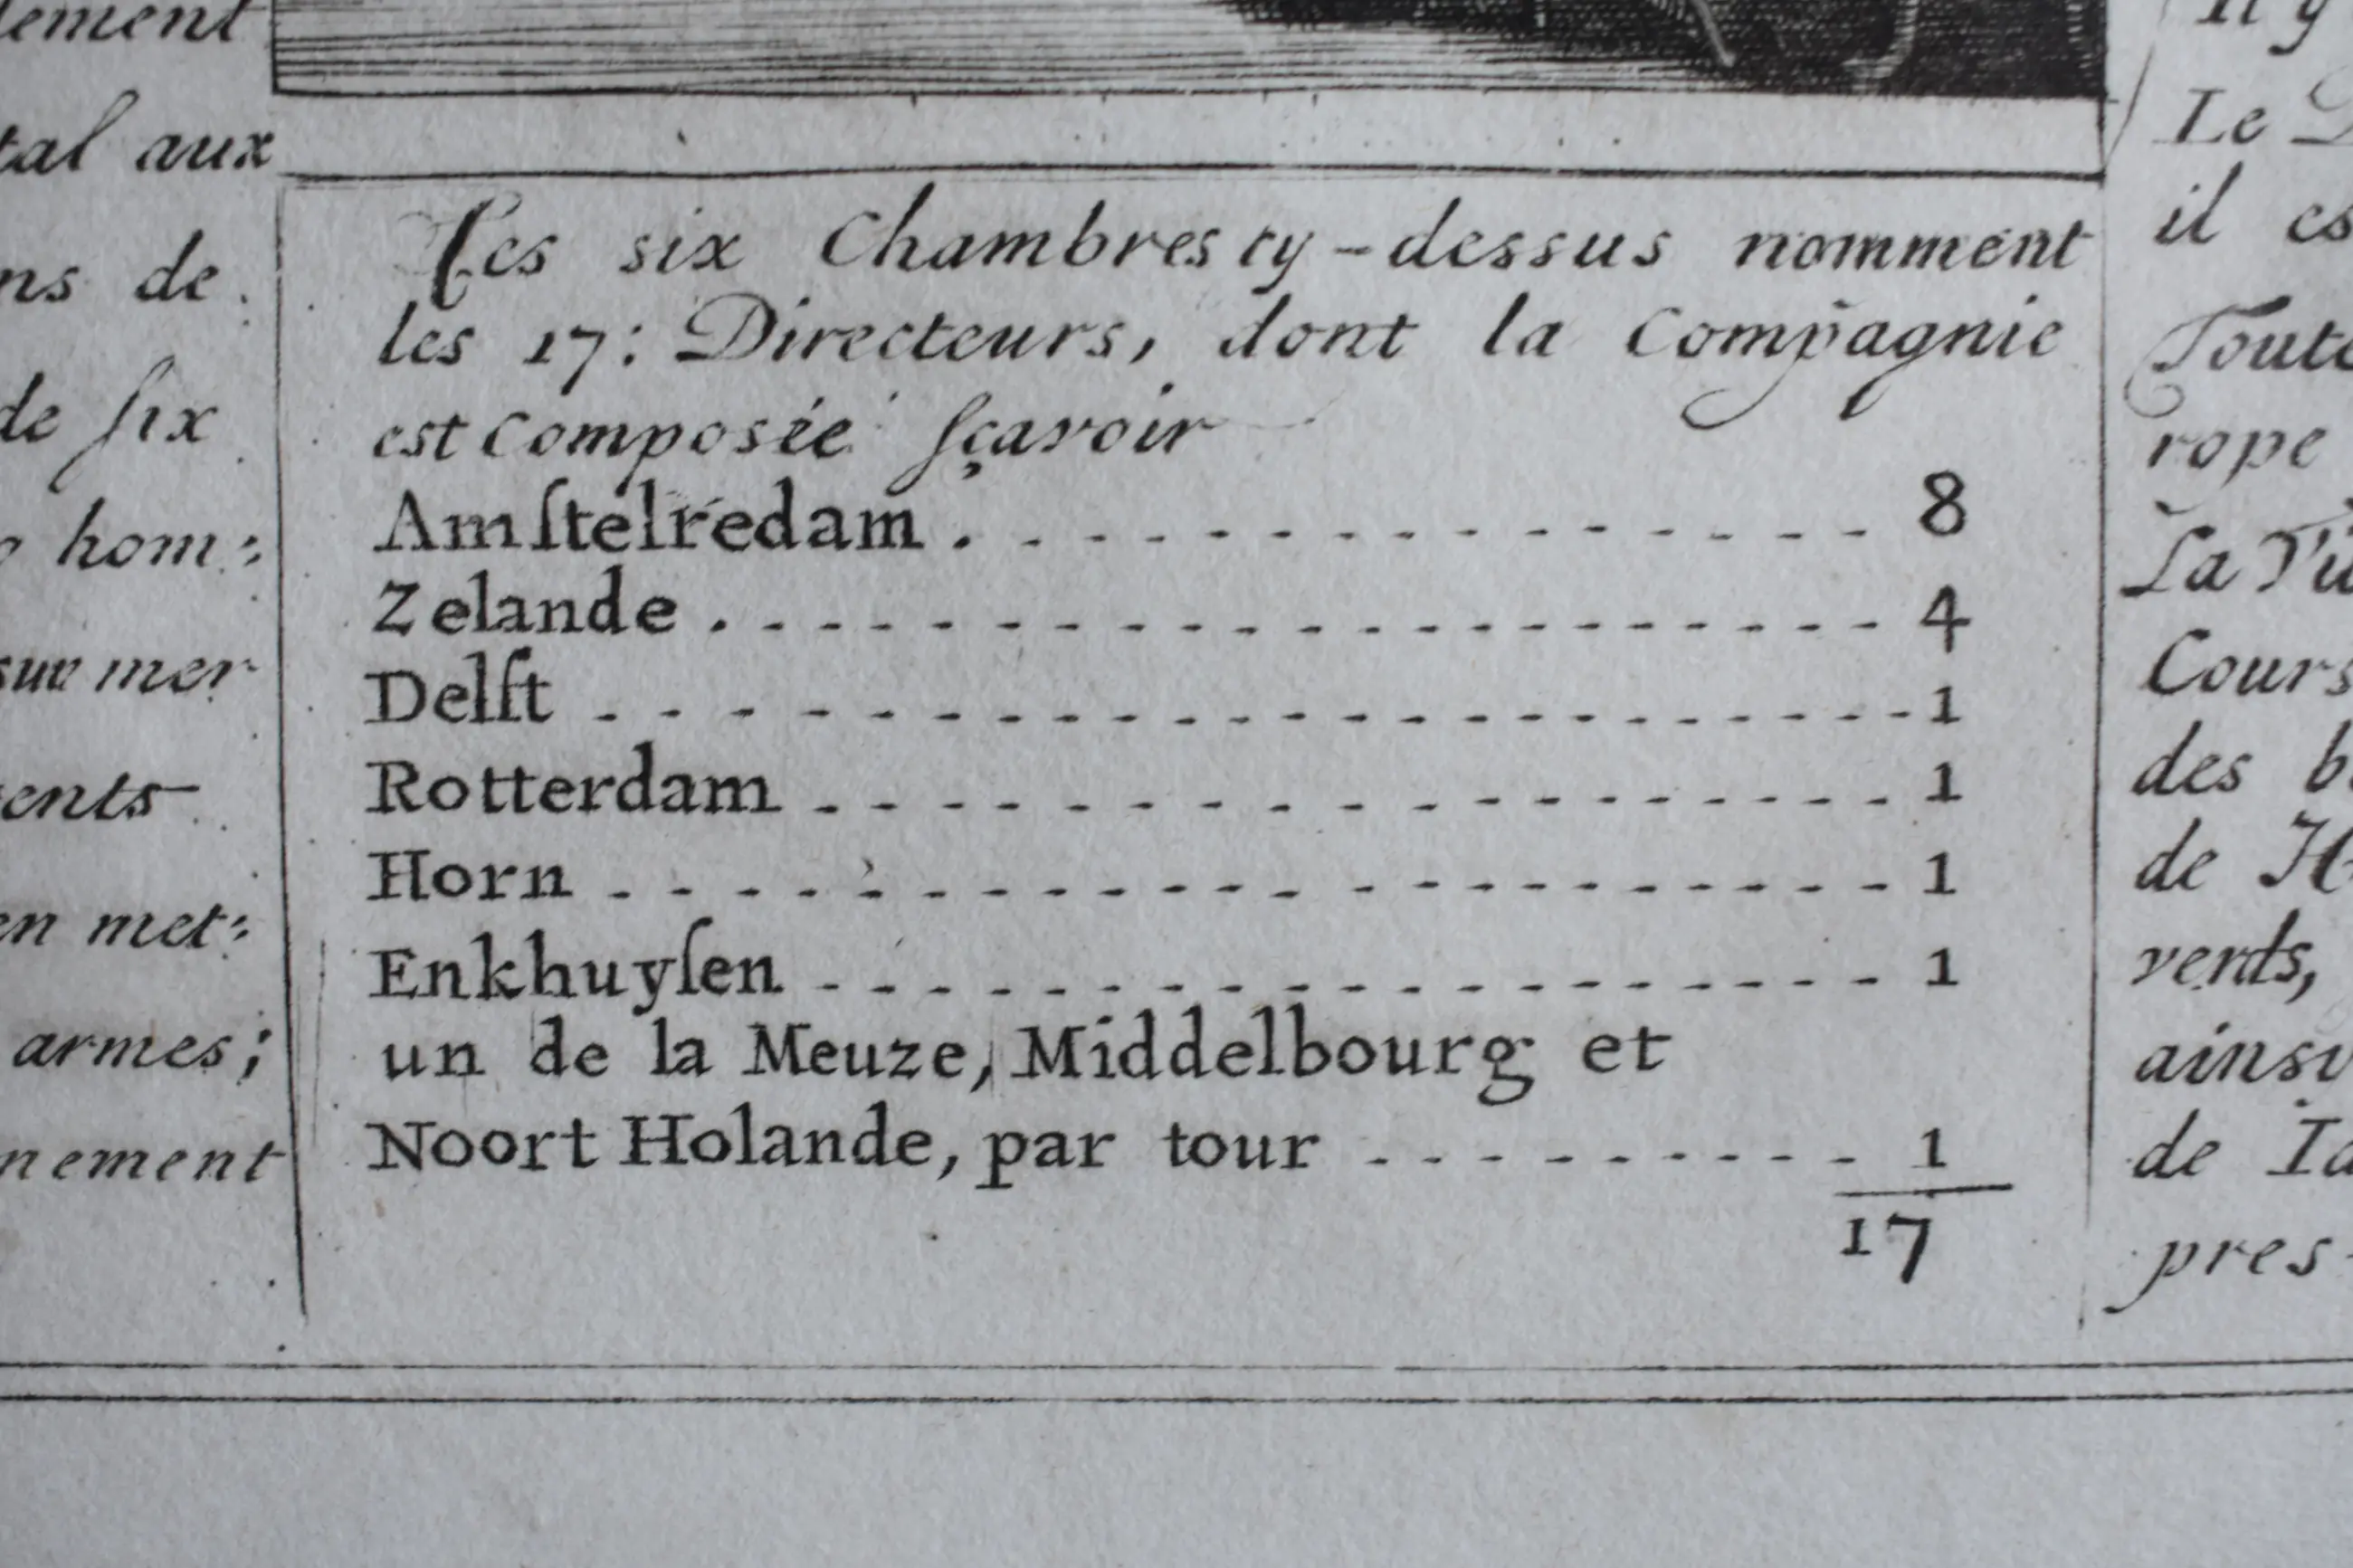 lement
tal aux
ns de
de ſix
hom:
sur mer
ents
en met:
armes;
nement
Ces six Chambres cy-dessus nomment
les 17: Directeurs, dont la Compagnie
est Composée sçavoir
Amſtelredam . . . . . . . . . . . . . . 8
Zelande . . . . . . . . . . . . . . . . . . 4
Delft . . . . . . . . . . . . . . . . . . . . 1
Rotterdam . . . . . . . . . . . . . . . . 1
Horn . . . . . . . . . . . . . . . . . . . . 1
Enkhuyſen . . . . . . . . . . . . . . . . 1
un de la Meuze, Middelbourg et
Noort Holande, par tour . . . . . . . . . 1
17
Il y
Le
il es
Toute
rope
La
Cours
des b
de H
verds,
ainsy
de Ia
pres